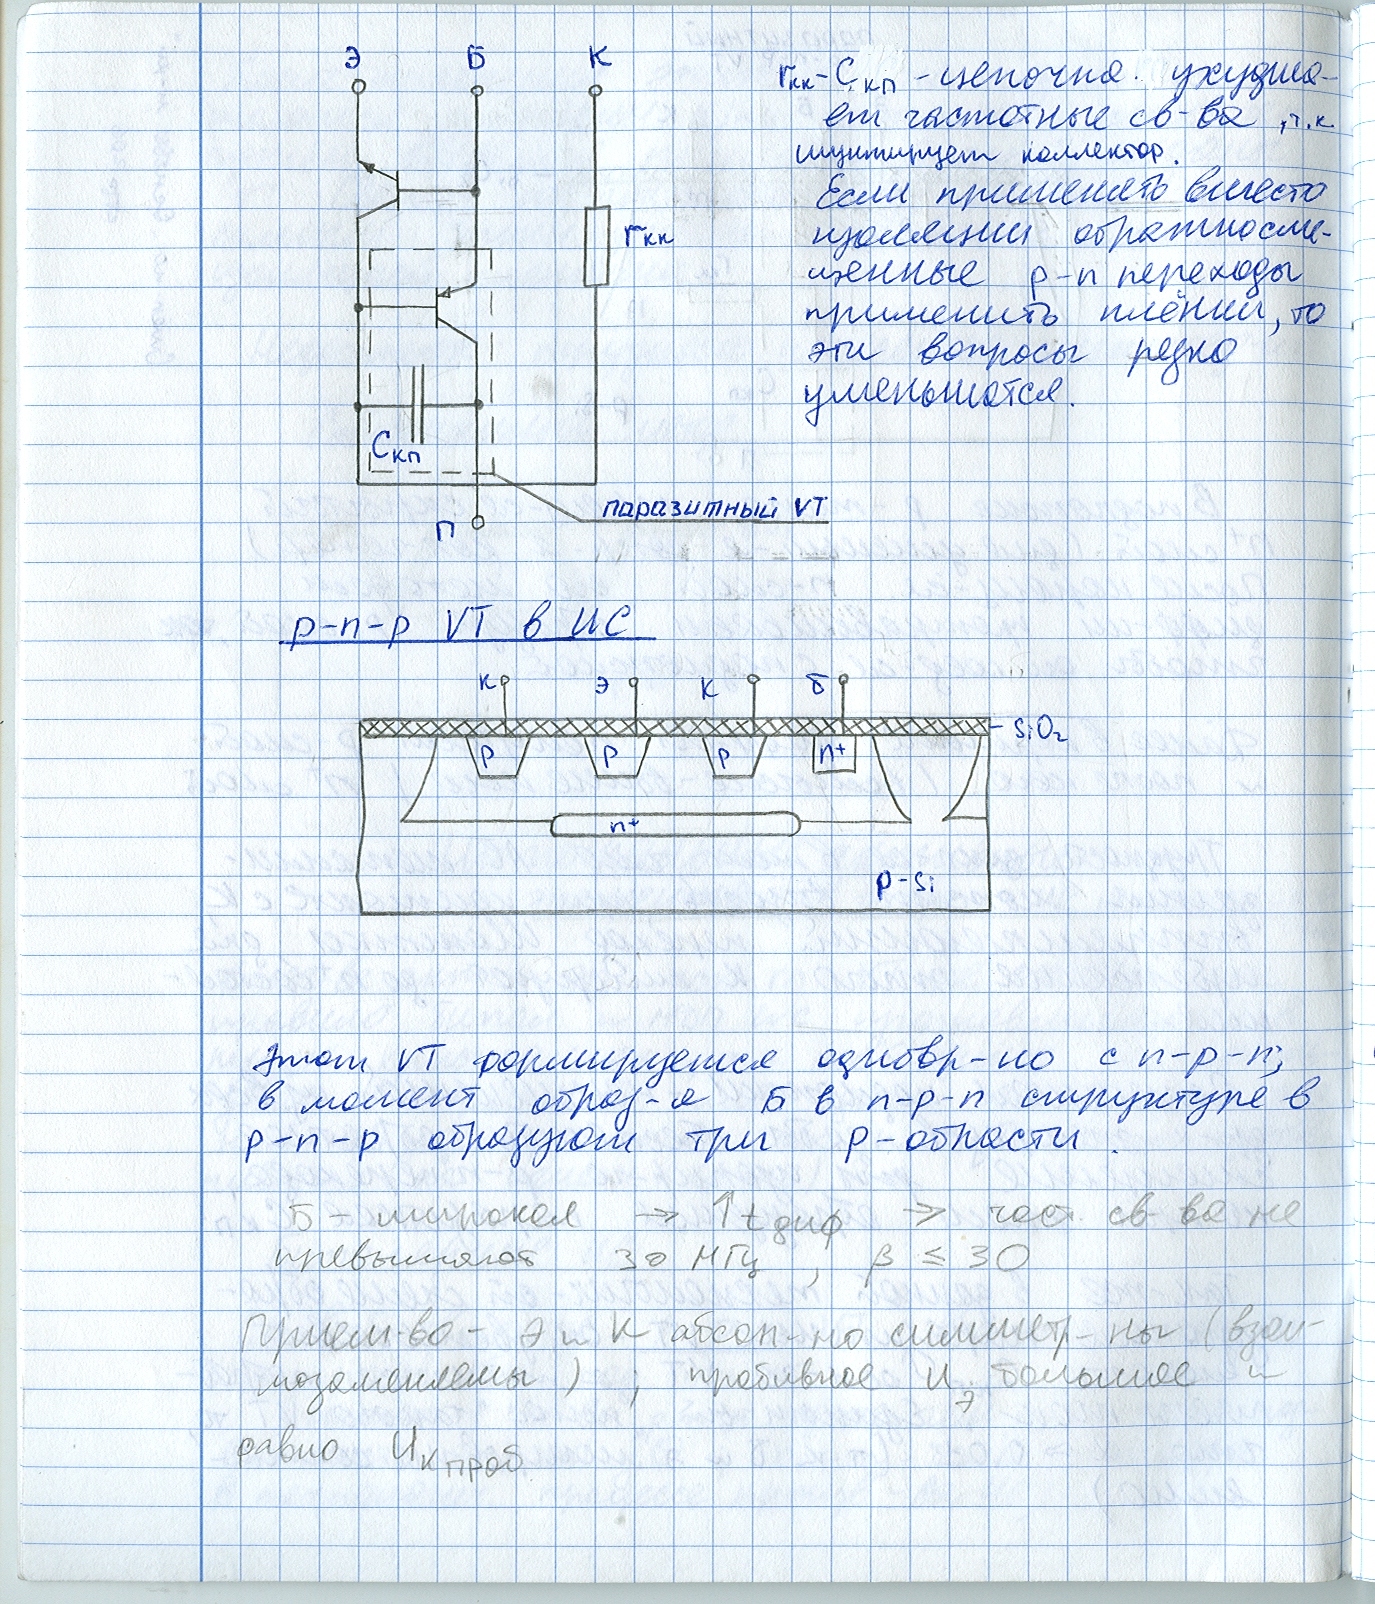 Э Б К
rкк
Cкп
П
паразитный VT
rкк-Cкп - цепочка ухудша-
ет частотные св-ва, т.к
шунтирует коллектор.
Если применять вместо
изоляции обратносме-
щенные p-n переходы
применить плёнки, то
эти вопросы резко
уменьшатся.
p-n-p VT в ИС
К Э К Б
SiO₂
p p p n+
n+
p-Si
Этот VT формируется одновр-но с n-p-n;
в момент образ-я Б в n-p-n структуре в
p-n-p образуют три p-области.
Б - широкая → ↑ t диф → част. св-ва не
превышают 30 МГц, β ≤ 30
Преим-во - Э и К абсол-но симметр-ны (взаи-
мозаменяемы); пробивное Uэ большое и
равно Uк проб